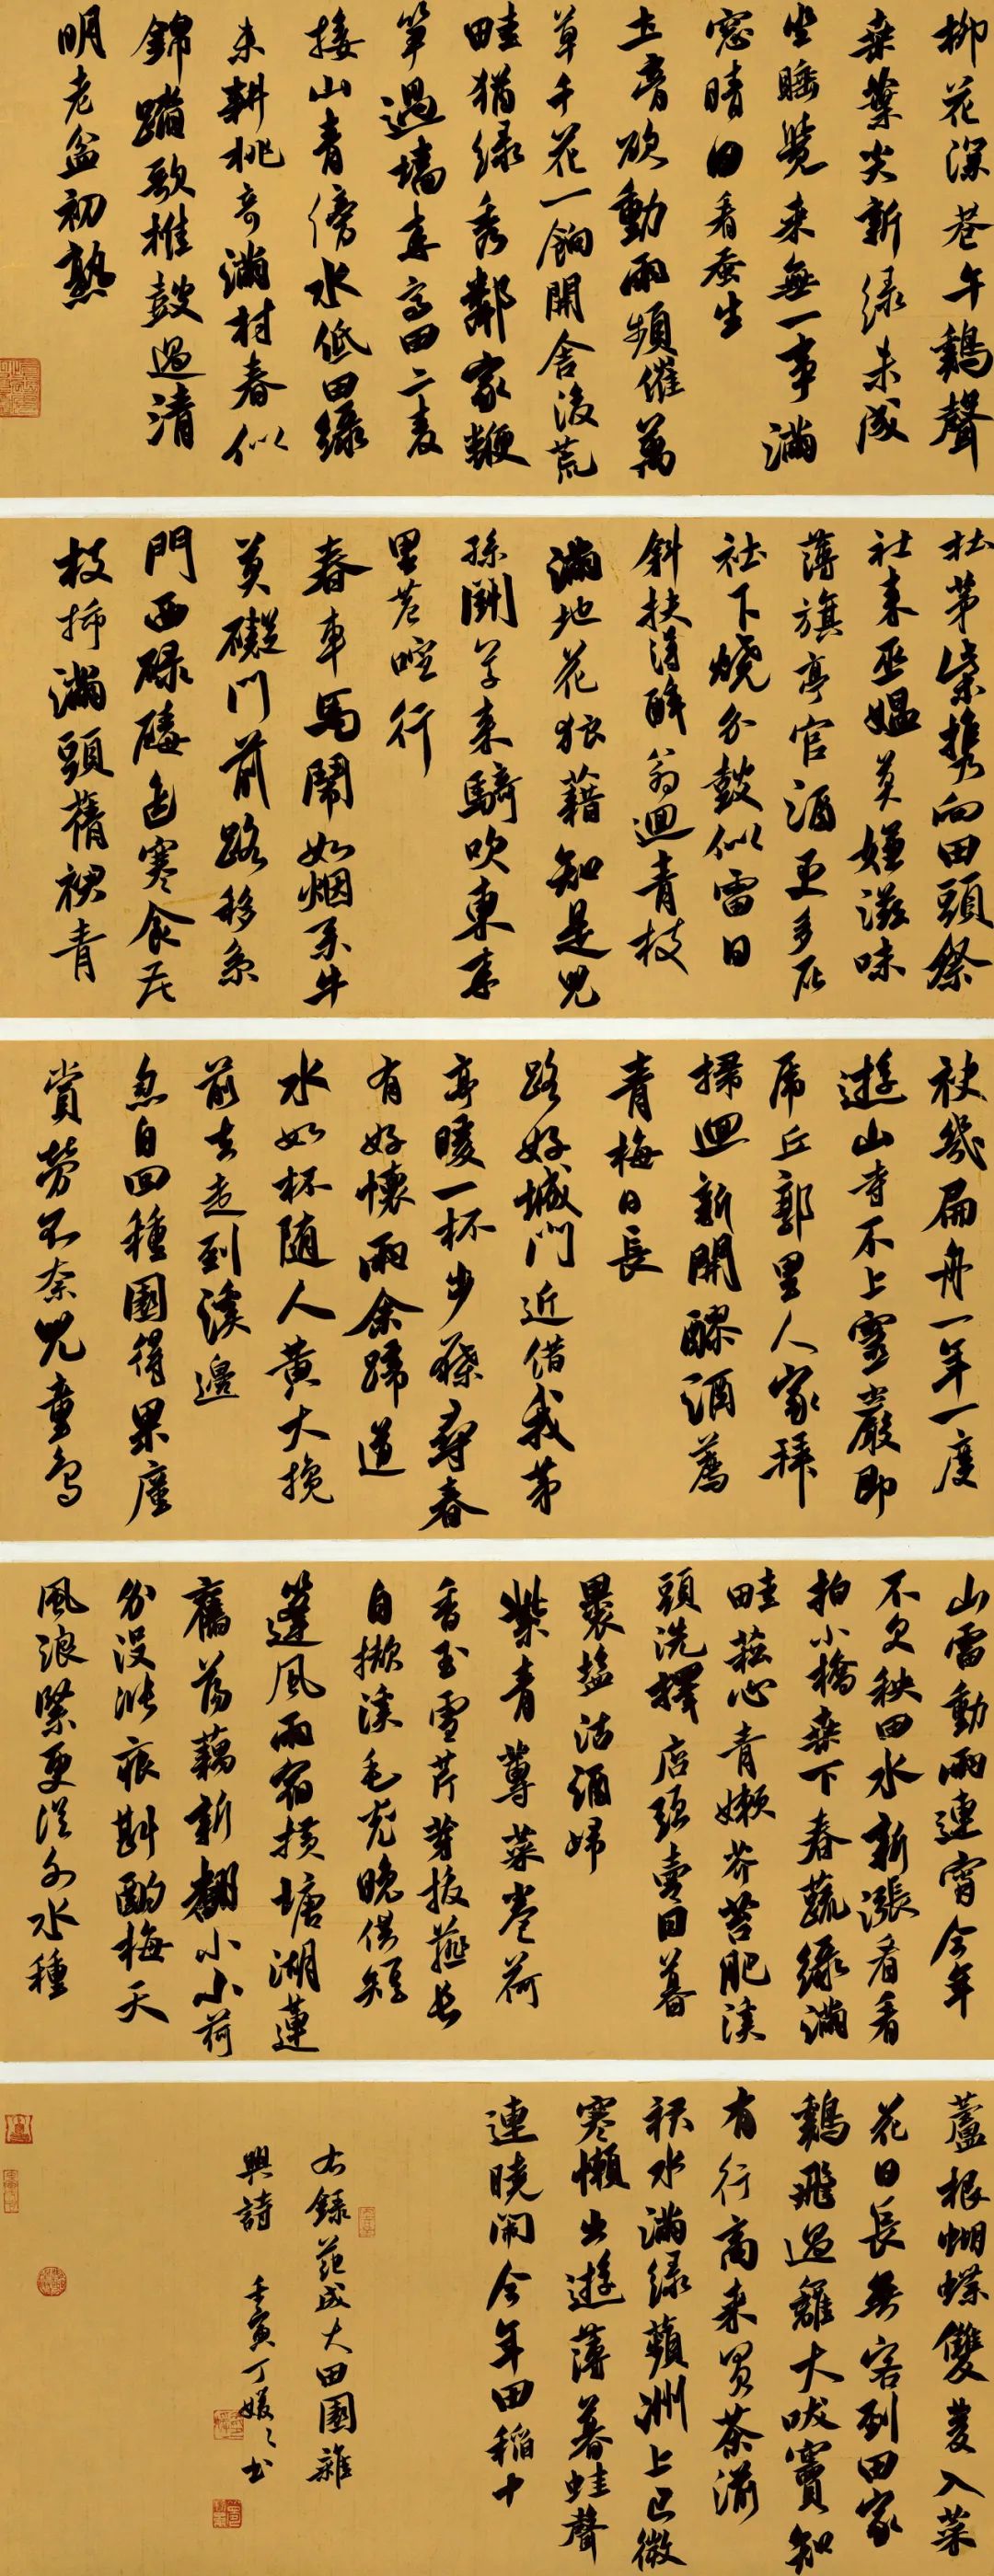 柳花深巷午鷄聲
桑葉尖新綠未成
坐睡覺來無一事滿
窓晴日看蚕生
土膏欲動雨頻催萬
草千花一餉開舍後荒
畦猶綠秀鄰家鞭
筍過墻來高田二麥
接山青傍水低田綠
未耕桃杏滿村春似
錦踏歌椎鼓過清
明老盆初熟
杜茅柴携向田頭祭
社來巫媪莫嫌滋味
薄旗亭官酒更多灰
社下燒分鼓似雷日
斜扶得醉翁迴青枝
滿地花狼藉知是兒
孫鬭草來騎吹東來
里巷喧行
春車馬鬧如烟系牛
莫礙門前路移系
門西碌碡邊寒食花
枝插滿頭蒨裙青
袂幾扁舟一年一度
遊山寺不上靈巖即
虎丘郭里人家拜
掃迴新開醪酒薦
青梅日長
路好城門近借我茅
亭暖一杯步屧尋春
有好懷雨余蹄道
水如杯隨人黃犬攙
前去走到溪邊
忽自回種園得果廑
賞勞不奈兒童鳥
山雷動雨連宵今年
不欠秧田水新漲看看
拍小橋桑下春蔬綠滿
畦菘心青嫩芥苔肥溪
頭洗擇店頭賣日暮
裹鹽沽酒歸
紫青蓴菜卷荷
香玉雪芹芽拔薤長
自擷溪毛充晚供短
篷風雨宿橫塘湖蓮
舊蕩藕新翻小小荷
分沒漲痕斟酌梅天
風浪緊更從外水種
蘆根蝴蝶雙雙入菜
花日長無客到田家
鷄飛過籬犬吠竇知
有行商來買茶湔
裙水滿綠蘋洲上巳微
寒懶出遊薄暮蛙聲
連曉鬧今年田稻十
右錄范成大田園雜
興詩 壬寅丁媛〻书